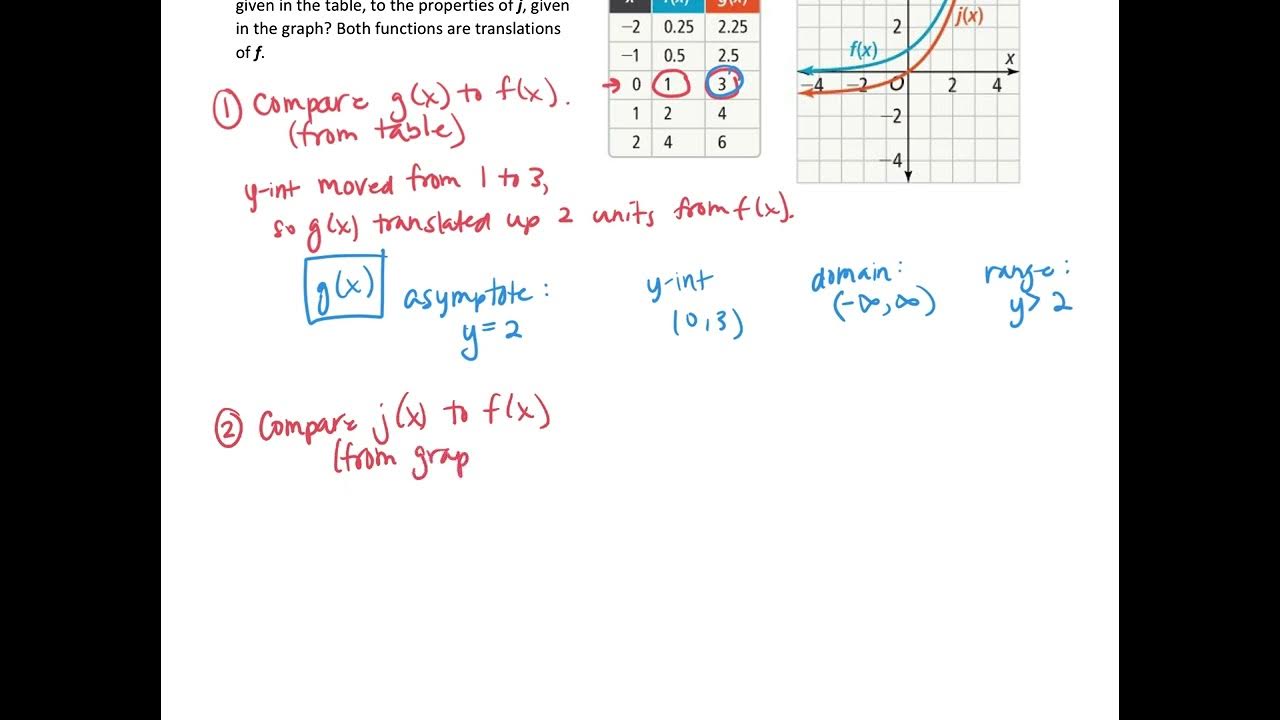 given in the table, to the properties of j, given
in the graph? Both functions are translations
of f.
x f(x) g(x)
−2 0.25 2.25
−1 0.5 2.5
→ 0 1 3
1 2 4
2 4 6
2
j(x)
f(x)
x
−4 −2 O 2 4
−2
−4
① Compare g(x) to f(x).
(from table)
y-int moved from 1 to 3,
so g(x) translated up 2 units from f(x).
g(x) asymptote: y-int domain: range:
y=2 (0,3) (-∞,∞) y> 2
② Compare j(x) to f(x)
(from grap